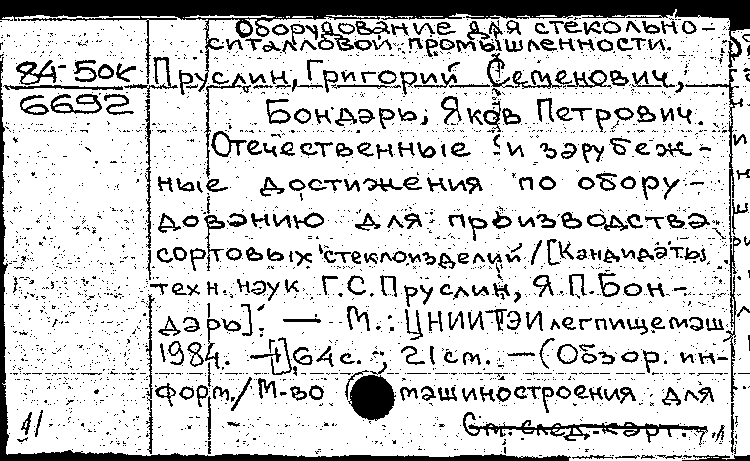 Оборудование для стекольно-
ситалловой промышленности.
84-50к
6692
Пруслин, Григорий Семенович,
Бондарь, Яков Петрович.
Отечественные и зарубеж-
ные достижения по обору-
дованию для производства
сортовых стеклоизделий / [Кандидаты
техн. наук Г.С. Пруслин, Я.П. Бон-
дарь]. — М.: ЦНИИТЭИлегпищемаш,
1984. — 64 с.; 21 см. — (Обзор. ин-
форм./ М-во машиностроения для
См. след. карт.